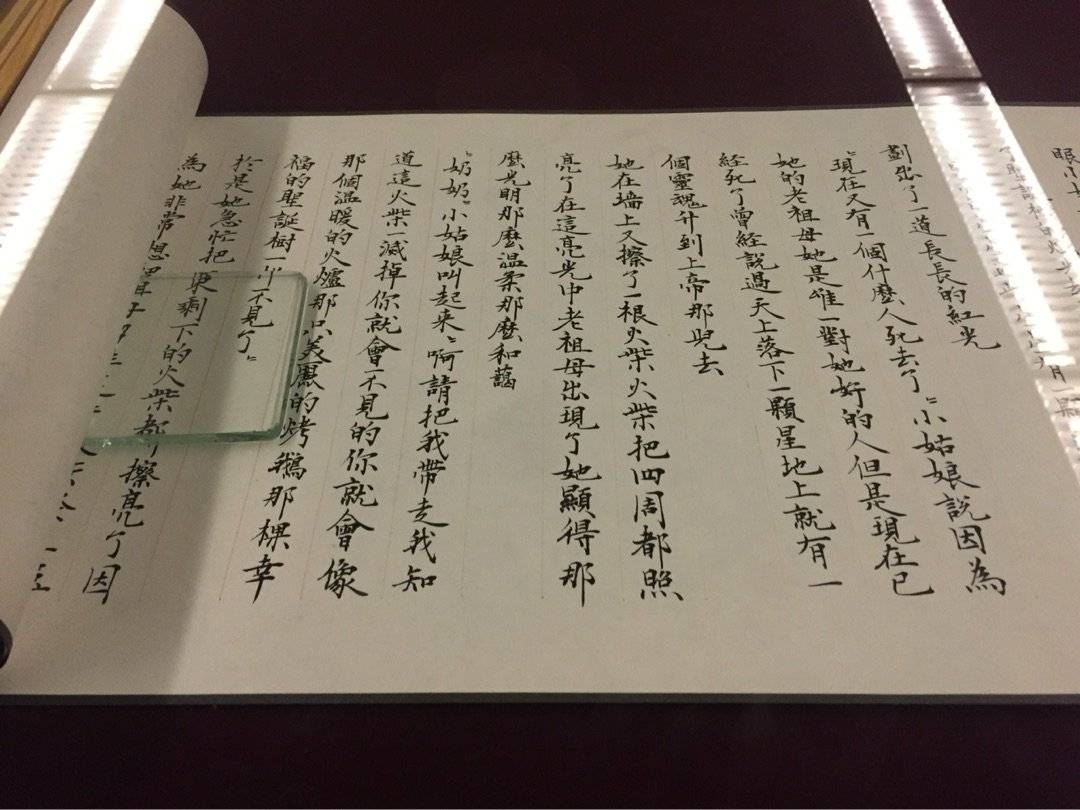 眼小
劃出了一道長長的紅光
“現在又有一個什麼人死去了”小姑娘說因為
她的老祖母她是唯一對她好的人但是現在已
經死了曾經說過天上落下一顆星地上就有一
個靈魂升到上帝那兒去
她在墙上又擦了一根火柴火柴把四周都照
亮了在這亮光中老祖母出現了她顯得那
麼光明那麼温柔那麼和藹
“奶奶”小姑娘叫起来“啊請把我带走我知
道這火柴一滅掉你就會不見的你就會像
那個温暖的火爐那只美麗的烤鵝那棵幸
福的聖誕樹一樣不見了”
於是她急忙把更剩下的火柴都擦亮了因
為她非常想